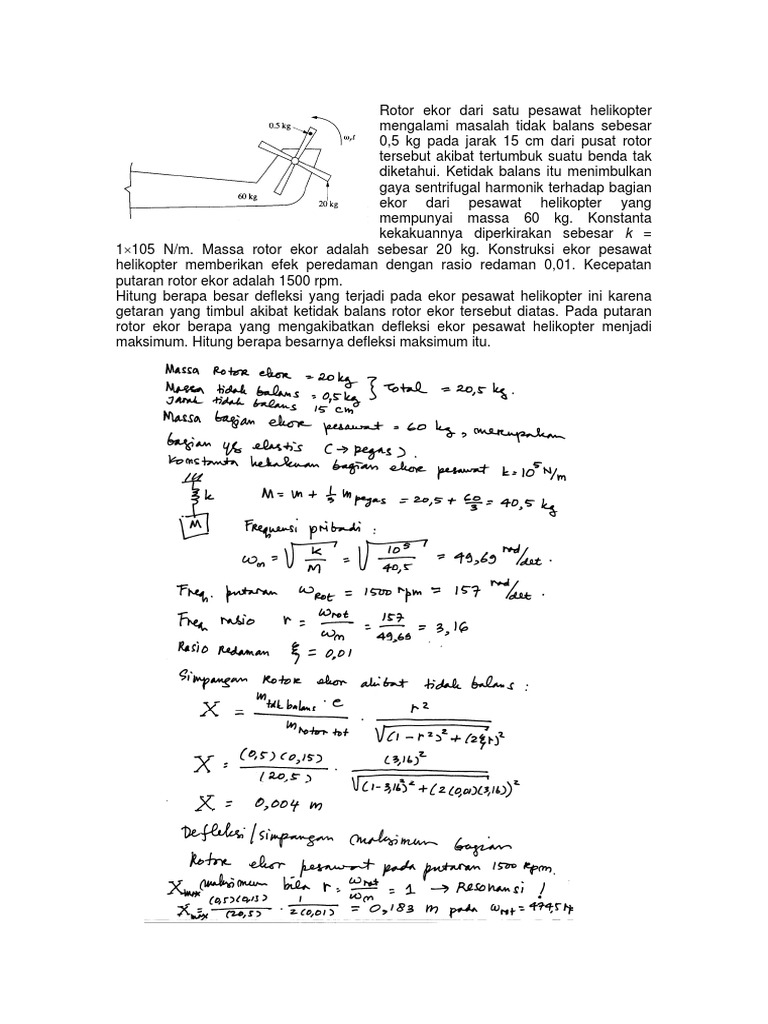 0.5 kg
ωᵣt
60 kg
20 kg
Rotor ekor dari satu pesawat helikopter
mengalami masalah tidak balans sebesar
0,5 kg pada jarak 15 cm dari pusat rotor
tersebut akibat tertumbuk suatu benda tak
diketahui. Ketidak balans itu menimbulkan
gaya sentrifugal harmonik terhadap bagian
ekor dari pesawat helikopter yang
mempunyai massa 60 kg. Konstanta
kekakuannya diperkirakan sebesar k =
1×105 N/m. Massa rotor ekor adalah sebesar 20 kg. Konstruksi ekor pesawat
helikopter memberikan efek peredaman dengan rasio redaman 0,01. Kecepatan
putaran rotor ekor adalah 1500 rpm.
Hitung berapa besar defleksi yang terjadi pada ekor pesawat helikopter ini karena
getaran yang timbul akibat ketidak balans rotor ekor tersebut diatas. Pada putaran
rotor ekor berapa yang mengakibatkan defleksi ekor pesawat helikopter menjadi
maksimum. Hitung berapa besarnya defleksi maksimum itu.
Massa Rotor ekor = 20 kg
Massa tidak balans = 0,5 kg } Total = 20,5 kg.
jarak tidak balans 15 cm
Massa bagian ekor pesawat = 60 kg, merupakan
bagian yg elastis (→ pegas).
Konstanta kekakuan bagian ekor pesawat k = 10⁵ N/m
k
M
M = m + 1/3 m pegas = 20,5 + 60/3 = 40,5 kg
Frequensi pribadi :
ωn = √(K/M) = √(10⁵/40,5) = 49,69 rad/det.
Freq. putaran ωRot = 1500 rpm = 157 rad/det.
Freq rasio r = ωrot/ωn = 157/49,69 = 3,16
Rasio Redaman ξ = 0,01
Simpangan Rotor ekor akibat tidak balans :
X = (m tdk balans · e)/(m rotor tot) · r²/√((1-r²)² + (2ξr)²
X = (0,5)(0,15)/(20,5) · (3,16)²/√((1-3,16²)² + (2(0,01)(3,16))²
X = 0,004 m
Defleksi/simpangan maksimum bagian
Rotor ekor pesawat pada putaran 1500 Rpm.
Xmax maksimum bila r = ωrot/ωn = 1 → Resonansi !
Xmax = (0,5)(0,15)/(20,5) · 1/2(0,01) = 0,183 m pada ωrot = 474,5